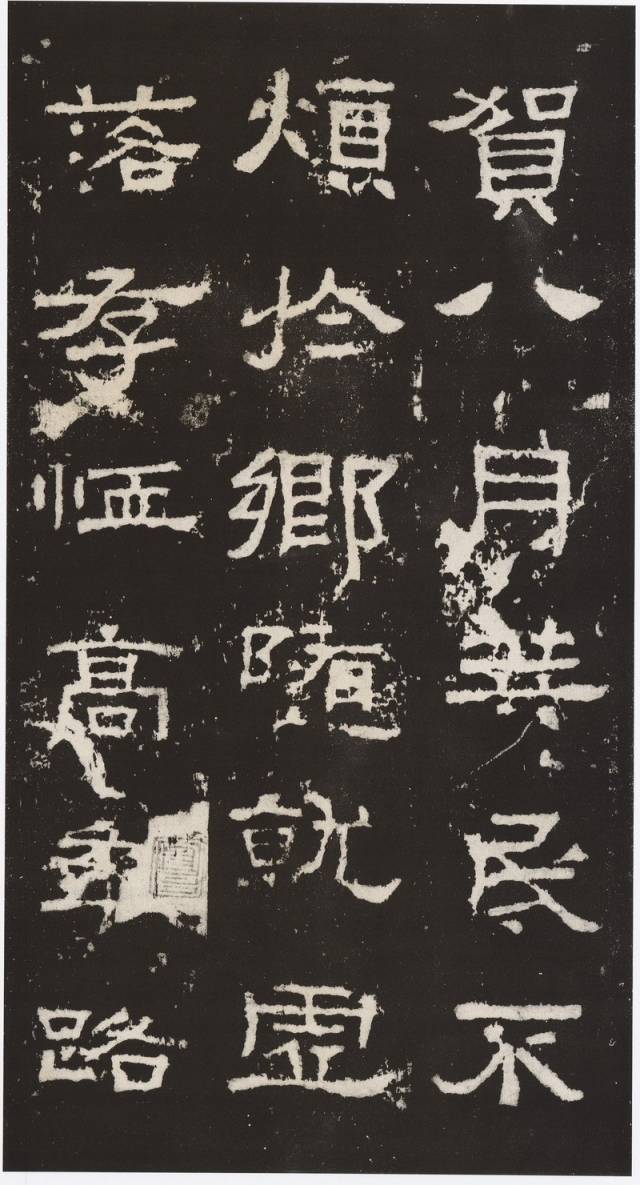 賀八月筭民不
煩扵鄉隨就虛
落存恤高年路